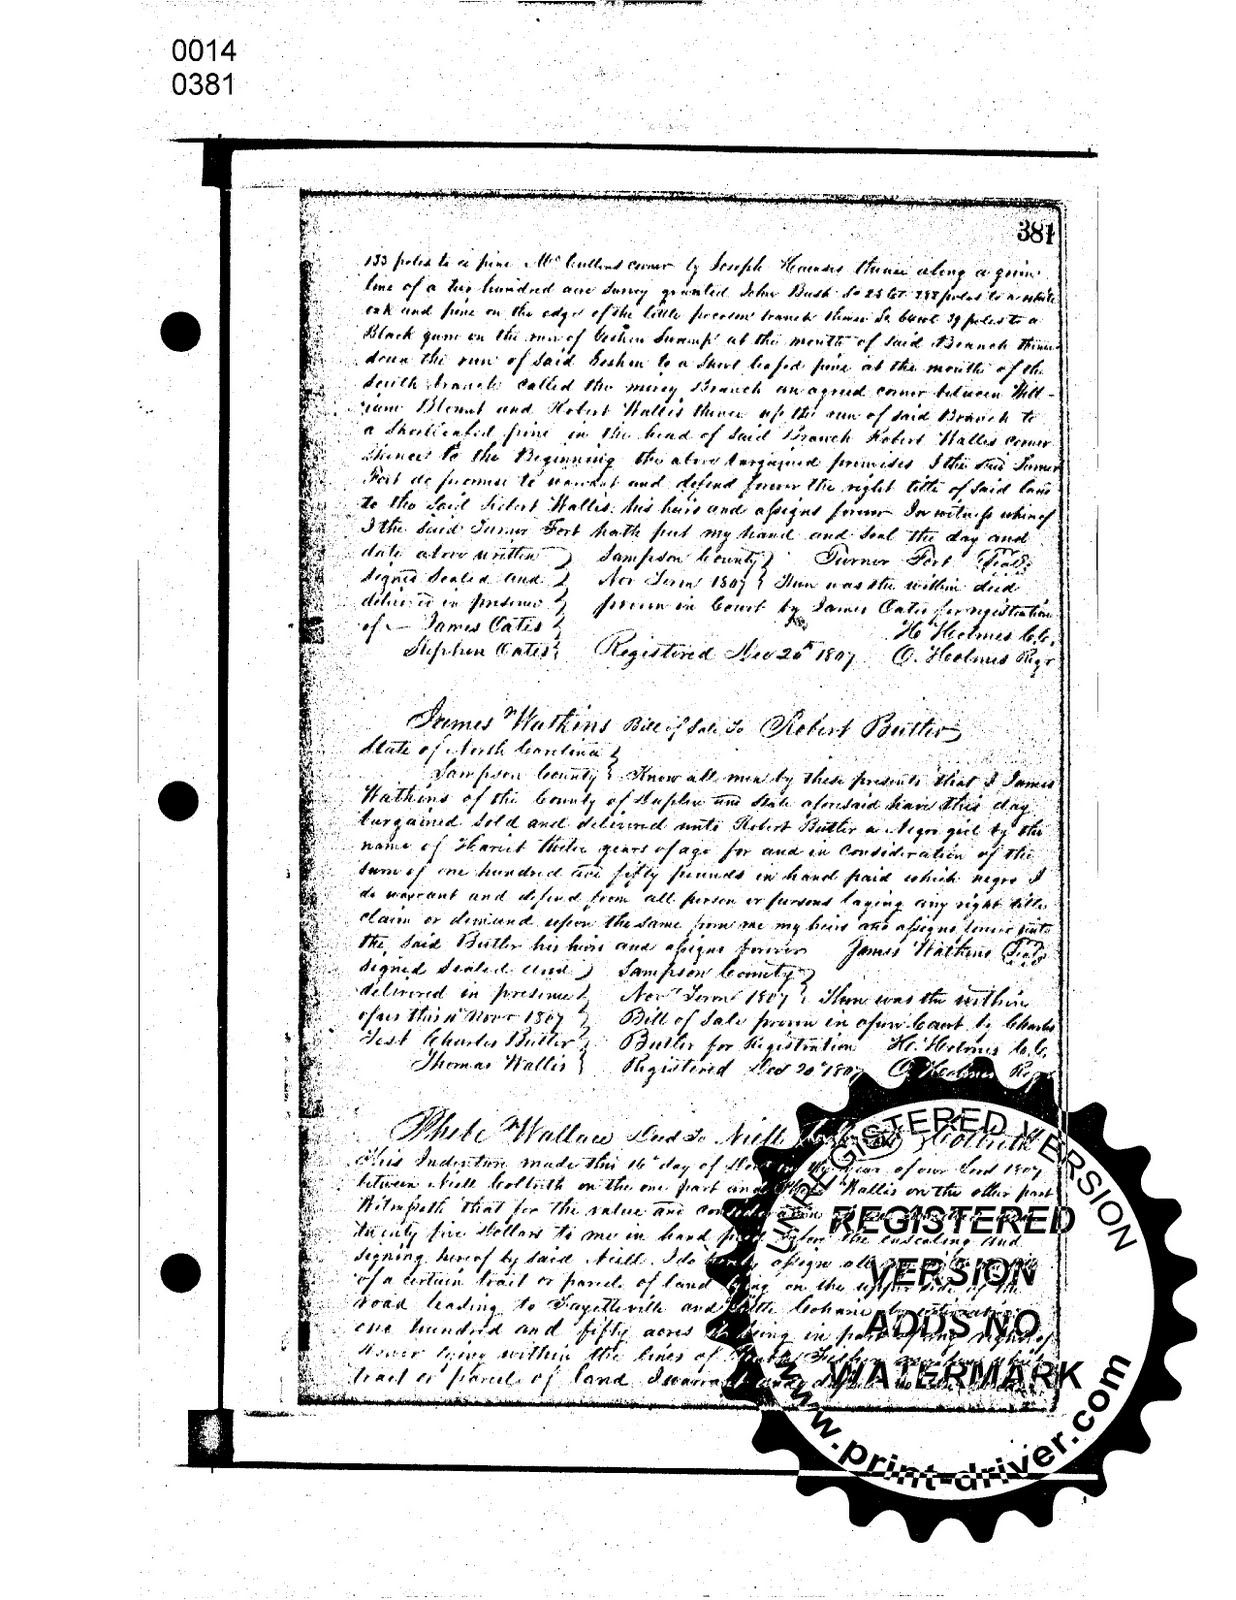 0014
0381
381
133 poles to a pine McCullens corner by Joseph thence along a given
line of a two hundred acre survey granted John Bush So 25 Et 288 poles to a white
oak and pine on the edge of the little branch thence So 39 poles to a
Black gum on the run of Goshen Swamp at the mouth of said Branch thence
down the run of Said Goshen to a Short leafed pine at the mouth of the
South branch called the mirey Branch an agreed corner between Will-
iam Blount and Robert Wallis thence up the run of said Branch to
a Shortleafed pine in the head of Said Branch Robert Wallis corner
thence to the Beginning the above bargained premises I the said Turner
Fort do promise to warrant and defend forever the right title of said land
to the Said Robert Wallis his heirs and assigns forever In witness whereof
I the Said Turner Fort hath put my hand and Seal the day and
date above written } Sampson County } Turner Fort (Seal)
Signed Sealed and } Nov Term 1807 } Then was the within deed
delivered in presence } proven in Court by James Oates for registration
of - James Oates } H Holmes C.C.
Stephen Oates } Registered Dec 20th 1807 O. Holmes Regr
James Watkins Bill of Sale To Robert Butler
State of North Carolina }
Sampson County } Know all men by these presents that I James
Watkins of the County of Duplin and State aforesaid have this day
bargained Sold and delivered unto Robert Butler a Negro girl by the
name of Harriet twelve years of age for and in Consideration of the
Sum of one hundred and fifty pounds in hand paid which negro I
do warrant and defend from all person or persons laying any right title
claim or demand upon the same from me my heirs and assigns forever unto
the Said Butler his heirs and assigns forever James Watkins (Seal)
Signed Sealed and } Sampson County }
delivered in presence } Novr Term 1807 } Then was the within
of us this Novr 1807 } Bill of Sale proven in open Court by Charles
Test Charles Butler } Butler for Registration H. Holmes C.C.
Thomas Wallis } Registered Dec 20th 1807 O. Holmes Regr
Phebe Wallace Deed To Niell Colbreth
This Indenture made this 16th day of in the year of our Lord 1807
between Niell Colbreth on the one part and Wallis on the other part
Witnesseth that for the value and consideration
twenty five Dollars to me in hand paid before the ensealing and
signing hereof by said Niell I do assign all
of a certain tract or parcel of land lying on the side of the
road leading to Fayetteville and little Coharie by
one hundred and fifty acres it being in part of my right of
dower lying within the lines of
tract or parcel of land I warrant and
UNREGISTERED VERSION
REGISTERED
VERSION
ADDS NO
WATERMARK
www.print-driver.com